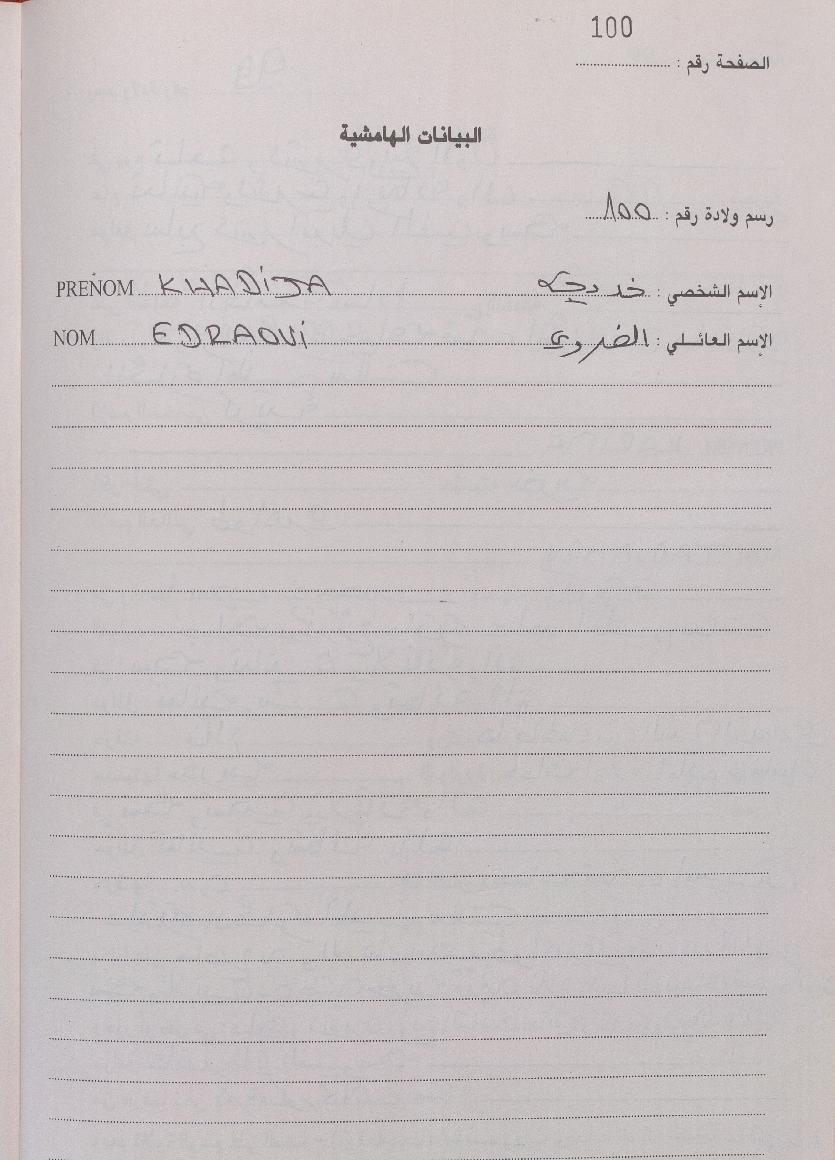 100
الصفحة رقم : ....................
البيانات الهامشية
رسم ولادة رقم : 100
PRENOM KHADiJA الإسم الشخصي : خديجة
NOM EDRAOUi الإسم العائلي : الضروي